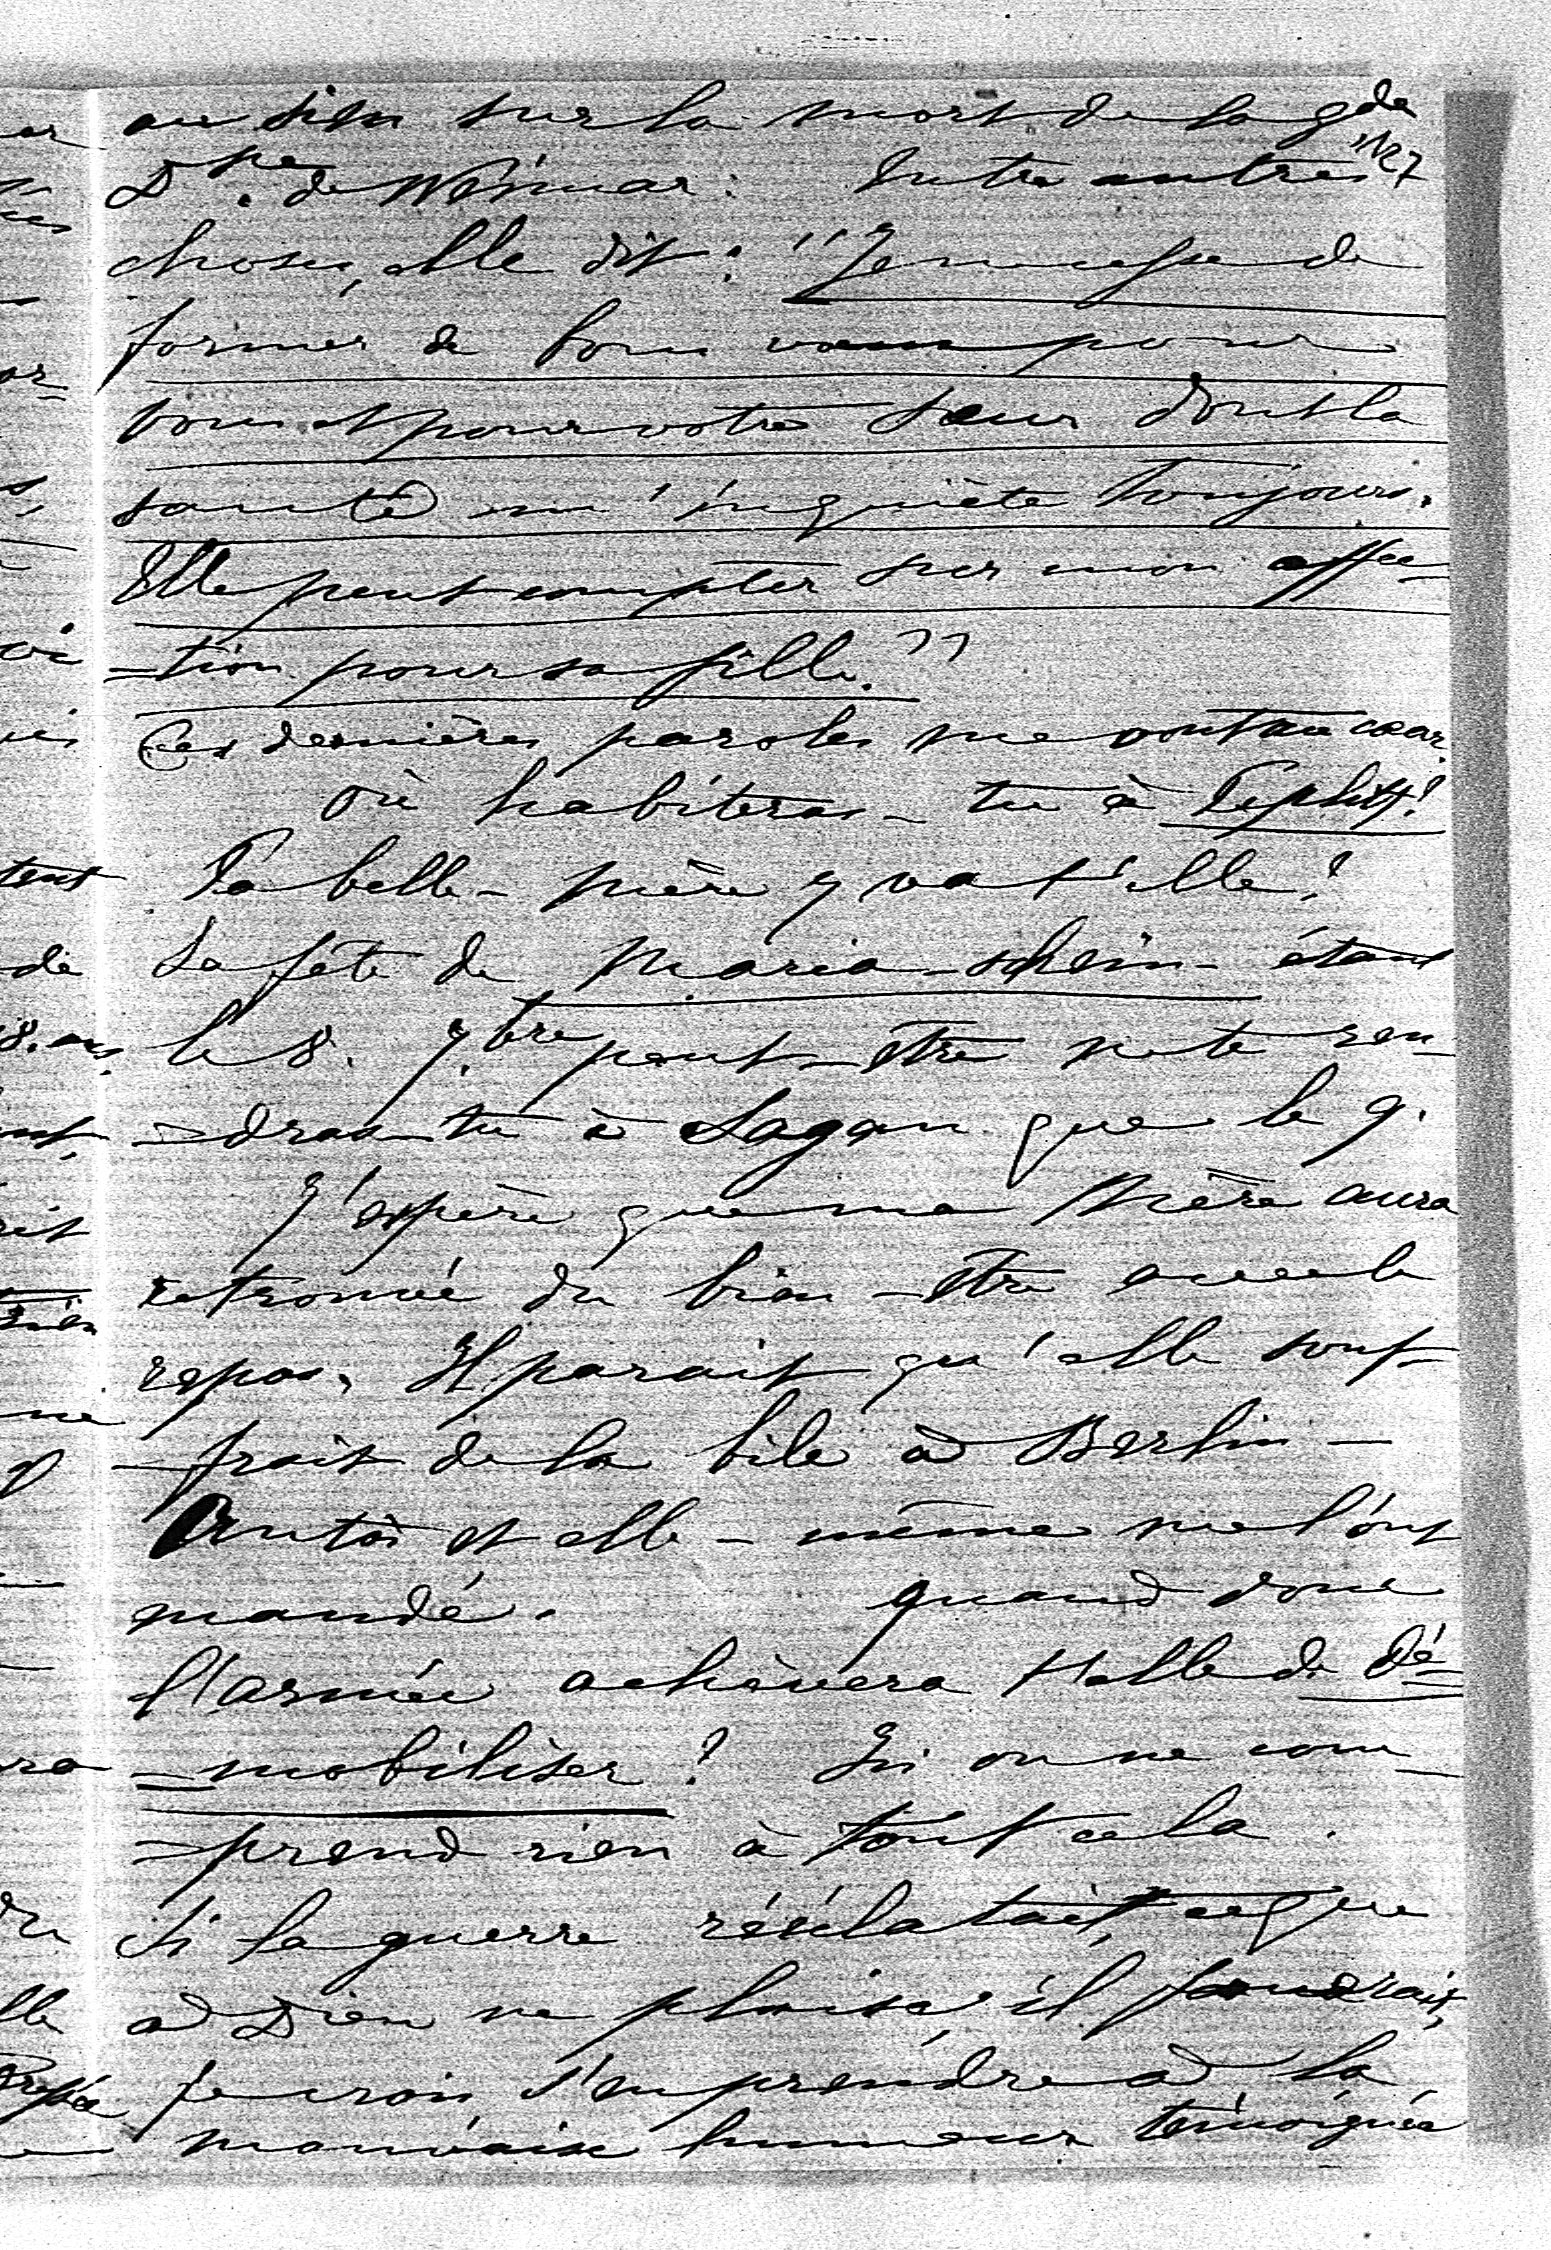 au sien sur la mort de la gde
1127
Dsse. de Weimar: Entre autres
choses, elle dit: "Je ne cesse de
former de bons vœux pour
vous et pour votre sœur dont la
santé m'inquiète toujours.
Elle peut compter sur mon affec-
-tion pour sa fille."
Ces dernières paroles me vont au cœur
où habiteras-tu à Teplitz?
Ta belle-mère y va t'elle?
La fête de Maria-schein- étant
le 8. 7.bre peut-être ne te ren-
-dras-tu à Sagan que le 9.
J'espère que ma Mère aura
retrouvé du bien-être avec le
repos. Il parait qu'elle souf-
-frait de la bile à Berlin-
et elle-même me l'ont
mandé. quand donc
l'armée achèvera t'elle de dé-
-mobiliser? Ici on ne com-
-prend rien à tout cela.
Si la guerre réeclatait, ce que
à Dieu ne plaise, il faudrait,
je crois s'en prendre à la
mauvaise humeur témoignée